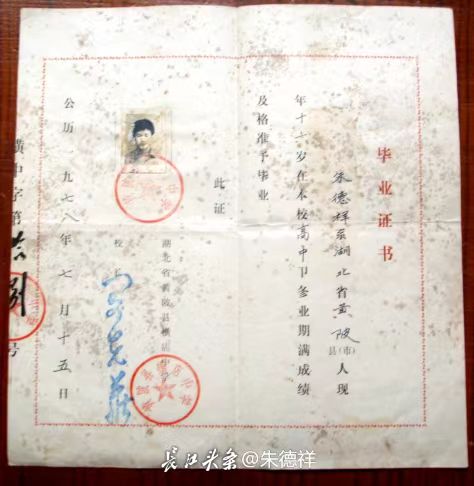 毕业证书
朱德祥系湖北省黄陂县(市)人现
年十七岁在本校高中卩参业期满成绩
及格准予毕业
此证
湖北省黄陂县横店中学
校长
公历一九七八年七月十五日
横中字第 号
长江头条@朱德祥